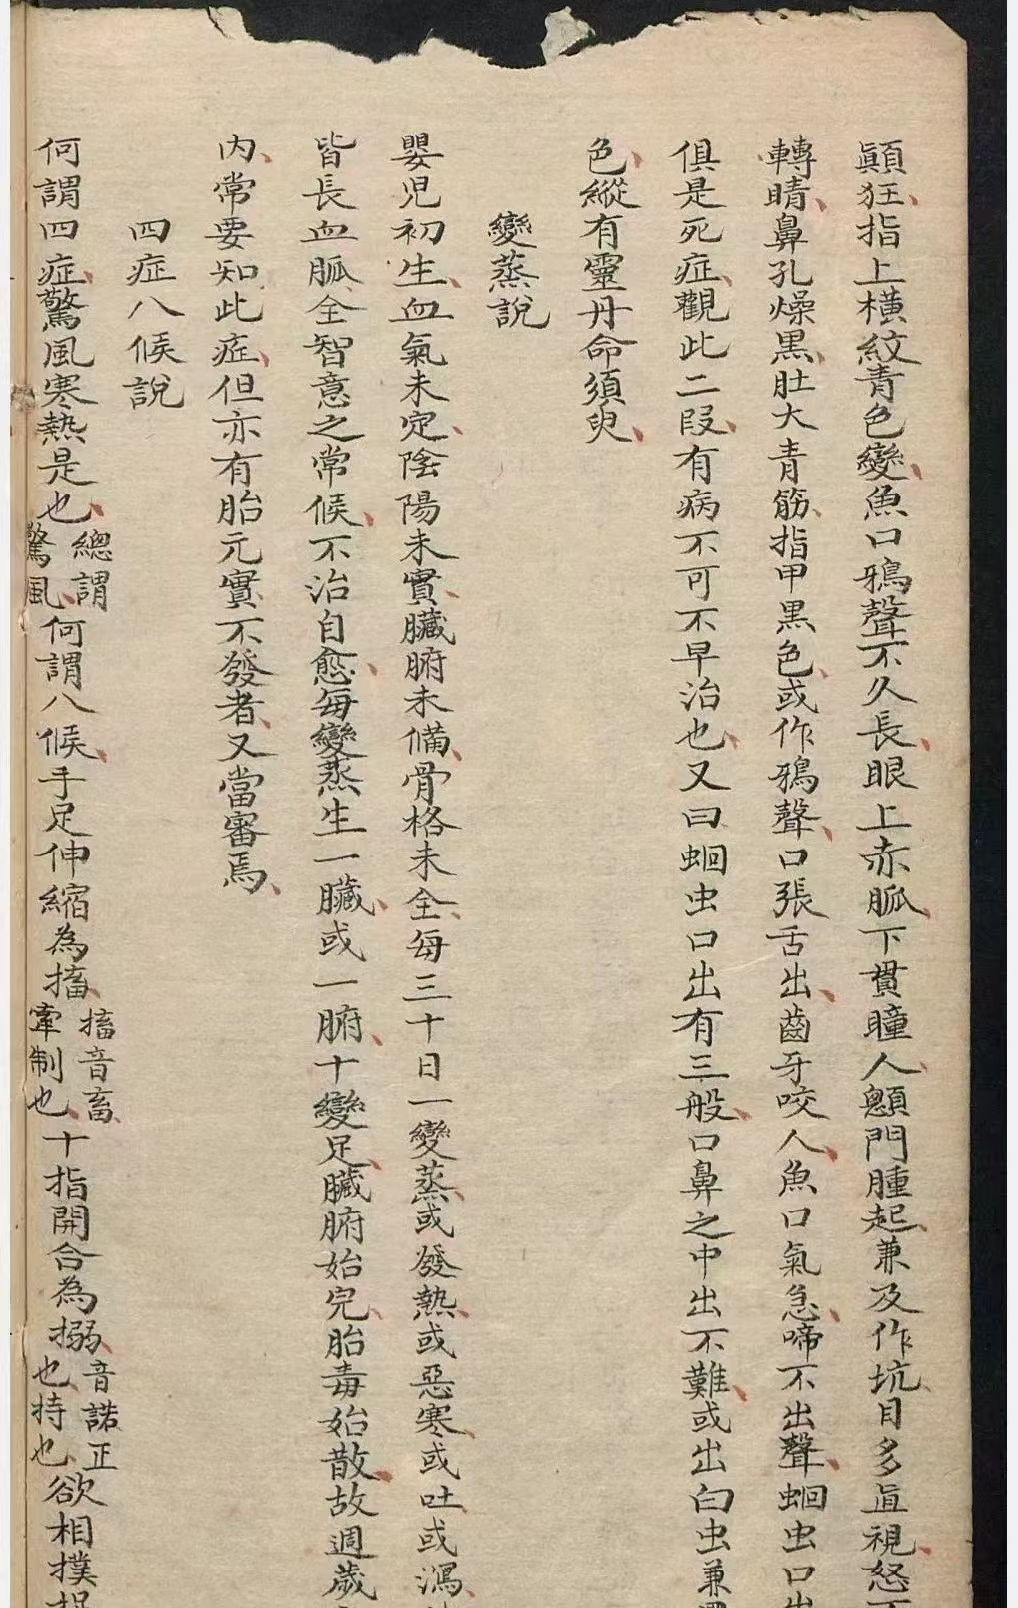 顛狂指上橫紋青色變魚口鴉聲不久長眼上赤脈下貫瞳人顖門腫起兼及作坑目多直視怒
轉睛鼻孔燥黑肚大青筋指甲黑色或作鴉聲口張舌出齒牙咬人魚口氣急啼不出聲蛔虫口出
俱是死症觀此二段有病不可不早治也又曰蛔虫口出有三般口鼻之中出不難或出白虫兼
色縱有靈丹命須臾
變蒸說
嬰児初生血氣未定陰陽未實臟腑未備骨格未全每三十日一變蒸或發熱或惡寒或吐或瀉
皆長血脈全智意之常候不治自愈每變蒸生一臟或一腑十變足臟腑始完胎毒始散故週歲
內常要知此症但亦有胎元實不發者又當審焉
四症八候說
何謂四症驚風寒熱是也
總謂
驚風
何謂八候手足伸縮為搐
搐音畜
牽制也
十指開合為搦
音諾正
也持也
欲相撲